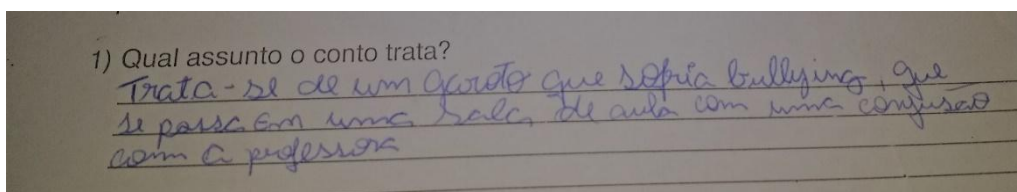 1) Qual assunto o conto trata?
Trata-se de um garoto que sofria bullying, que
se passa em uma sala de aula com uma confusão
com a professora